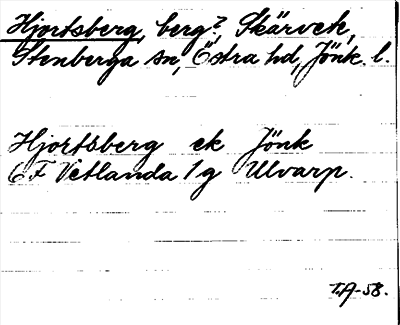 Hjortsberg, berg?, Skärveh,
Stenberga sn, Östra hd, Jönk. l.
Hjortsberg ek Jönk
EF Vetlanda 1 g Ulvarp.
T.A-58.